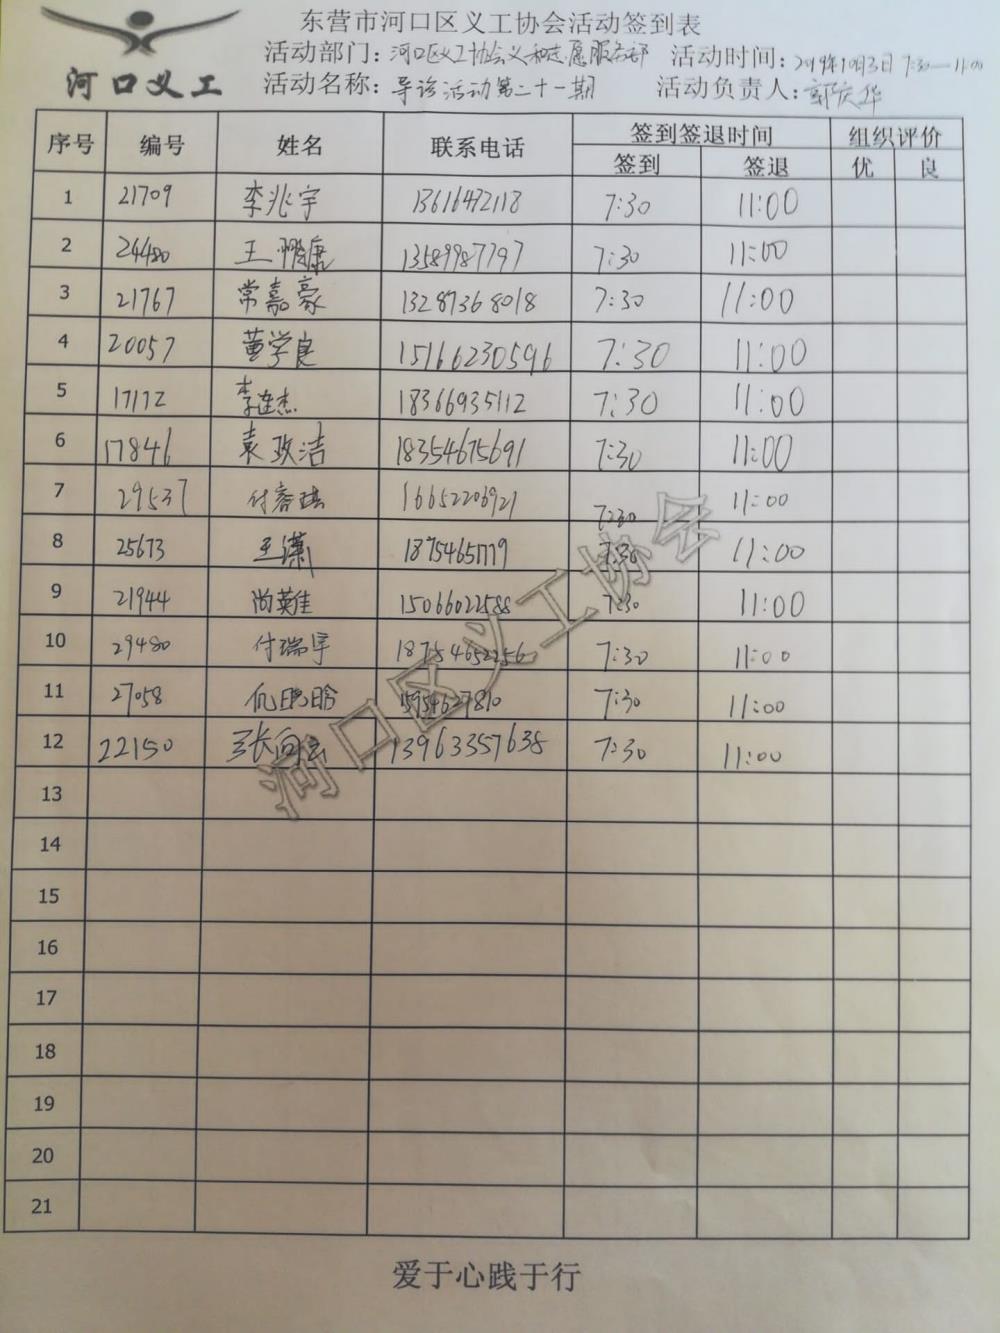 东营市河口区义工协会活动签到表
河口义工
活动部门：河口区义工协会义和志愿服务部 活动时间：2019年10月3日 7:30—11:00
活动名称：导诊活动第二十一期 活动负责人：郭庆华
序号 编号 姓名 联系电话 签到签退时间 组织评价
签到 签退 优 良
1 21709 李兆宇 13616472118 7:30 11:00
2 24480 王 康 13589987797 7:30 11:00
3 21767 常嘉豪 13287368018 7:30 11:00
4 20057 董学良 15166230596 7:30 11:00
5 17172 李连杰 18366935112 7:30 11:00
6 17846 袁政洁 18354675691 7:30 11:00
7 29537 付容琪 16652206921 7:30 11:00
8 25673 王潇 7:30 11:00
9 21944 尚 15066022588 7:30 11:00
10 29480 付瑞宇 18754652256 7:30 11:00
11 27058 仉晓晗 15954627810 7:30 11:00
12 22150 张向云 13963357638 7:30 11:00
13
14
15
16
17
18
19
20
21
河口区义工协会
爱于心践于行